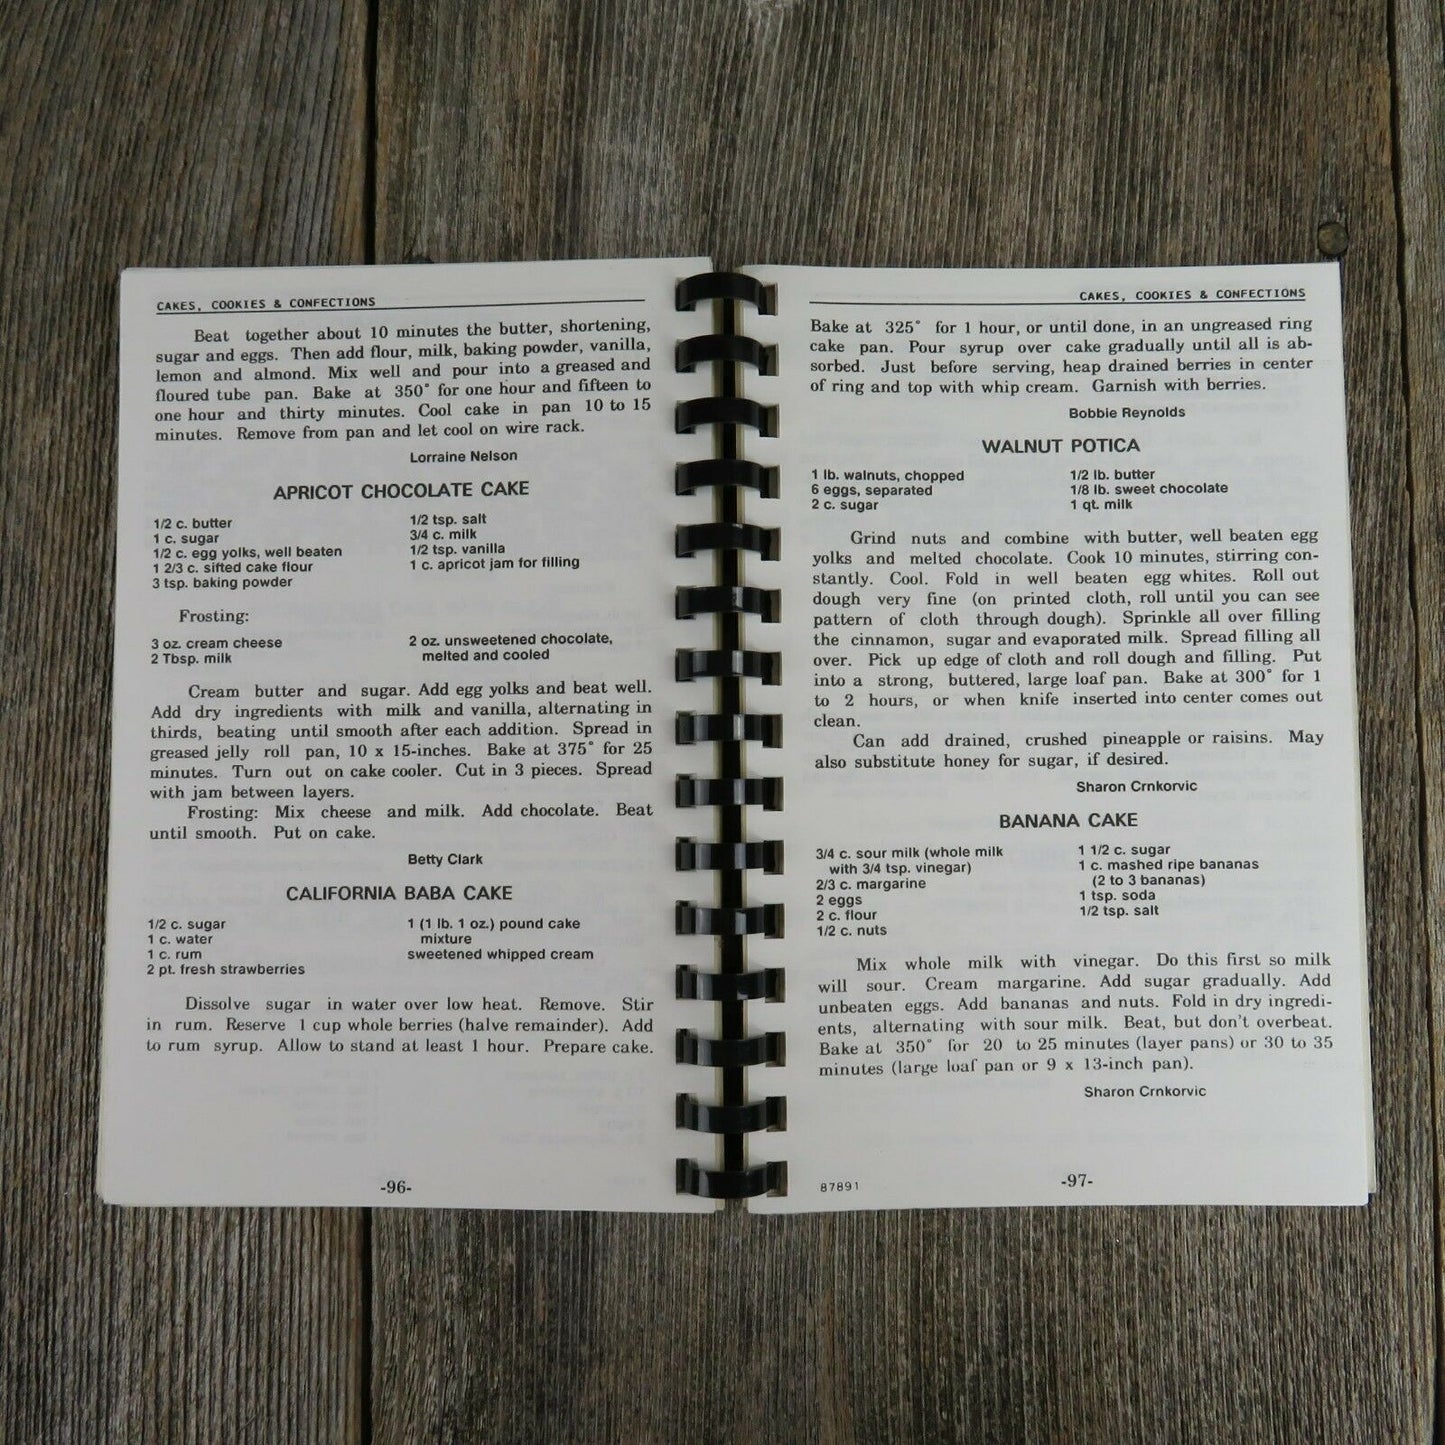 CAKES, COOKIES & CONFECTIONS
Beat together about 10 minutes the butter, shortening,
sugar and eggs. Then add flour, milk, baking powder, vanilla,
lemon and almond. Mix well and pour into a greased and
floured tube pan. Bake at 350° for one hour and fifteen to
one hour and thirty minutes. Cool cake in pan 10 to 15
minutes. Remove from pan and let cool on wire rack.
Lorraine Nelson
APRICOT CHOCOLATE CAKE
1/2 c. butter
1 c. sugar
1/2 c. egg yolks, well beaten
1 2/3 c. sifted cake flour
3 tsp. baking powder
1/2 tsp. salt
3/4 c. milk
1/2 tsp. vanilla
1 c. apricot jam for filling
Frosting:
3 oz. cream cheese
2 Tbsp. milk
2 oz. unsweetened chocolate,
melted and cooled
Cream butter and sugar. Add egg yolks and beat well.
Add dry ingredients with milk and vanilla, alternating in
thirds, beating until smooth after each addition. Spread in
greased jelly roll pan, 10 x 15-inches. Bake at 375° for 25
minutes. Turn out on cake cooler. Cut in 3 pieces. Spread
with jam between layers.
Frosting: Mix cheese and milk. Add chocolate. Beat
until smooth. Put on cake.
Betty Clark
CALIFORNIA BABA CAKE
1/2 c. sugar
1 c. water
1 c. rum
2 pt. fresh strawberries
1 (1 lb. 1 oz.) pound cake
mixture
sweetened whipped cream
Dissolve sugar in water over low heat. Remove. Stir
in rum. Reserve 1 cup whole berries (halve remainder). Add
to rum syrup. Allow to stand at least 1 hour. Prepare cake.
-96-
CAKES, COOKIES & CONFECTIONS
Bake at 325° for 1 hour, or until done, in an ungreased ring
cake pan. Pour syrup over cake gradually until all is ab-
sorbed. Just before serving, heap drained berries in center
of ring and top with whip cream. Garnish with berries.
Bobbie Reynolds
WALNUT POTICA
1 lb. walnuts, chopped
6 eggs, separated
2 c. sugar
1/2 lb. butter
1/8 lb. sweet chocolate
1 qt. milk
Grind nuts and combine with butter, well beaten egg
yolks and melted chocolate. Cook 10 minutes, stirring con-
stantly. Cool. Fold in well beaten egg whites. Roll out
dough very fine (on printed cloth, roll until you can see
pattern of cloth through dough). Sprinkle all over filling
the cinnamon, sugar and evaporated milk. Spread filling all
over. Pick up edge of cloth and roll dough and filling. Put
into a strong, buttered, large loaf pan. Bake at 300° for 1
to 2 hours, or when knife inserted into center comes out
clean.
Can add drained, crushed pineapple or raisins. May
also substitute honey for sugar, if desired.
Sharon Crnkorvic
BANANA CAKE
3/4 c. sour milk (whole milk
with 3/4 tsp. vinegar)
2/3 c. margarine
2 eggs
2 c. flour
1/2 c. nuts
1 1/2 c. sugar
1 c. mashed ripe bananas
(2 to 3 bananas)
1 tsp. soda
1/2 tsp. salt
Mix whole milk with vinegar. Do this first so milk
will sour. Cream margarine. Add sugar gradually. Add
unbeaten eggs. Add bananas and nuts. Fold in dry ingredi-
ents, alternating with sour milk. Beat, but don't overbeat.
Bake at 350° for 20 to 25 minutes (layer pans) or 30 to 35
minutes (large loaf pan or 9 x 13-inch pan).
Sharon Crnkorvic
87891
-97-